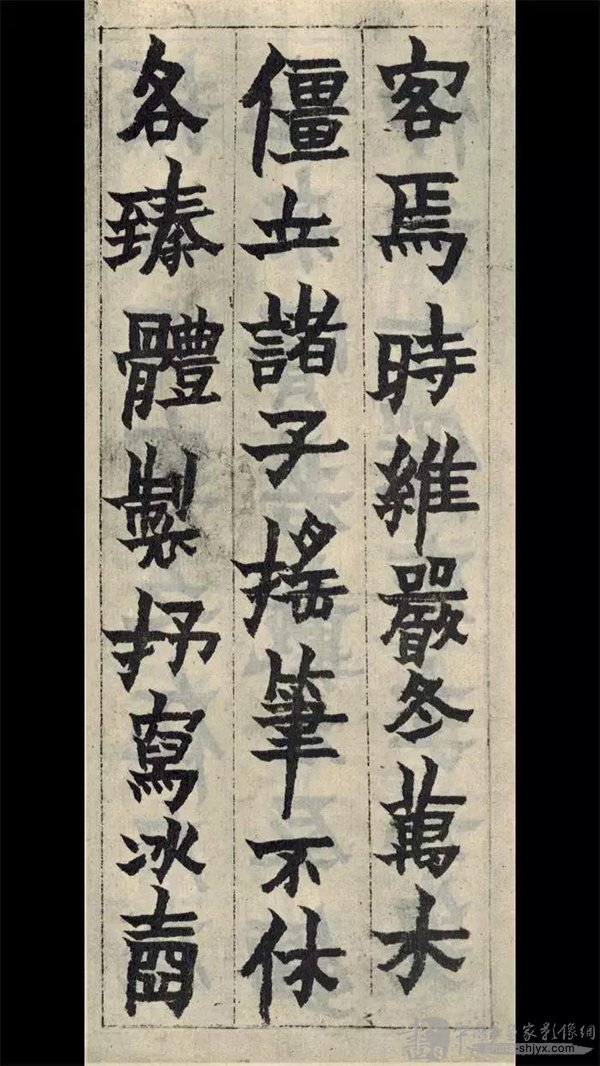 客焉時維嚴冬萬木
僵立諸子搖筆不休
各臻體製抒寫冰
家影像網
china-shjyx.com